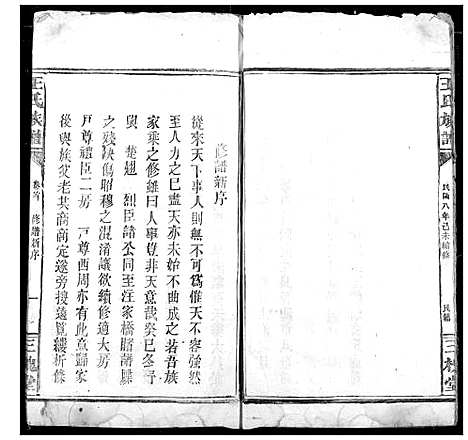 王氏族譜
民國八年己未續修
民籍
三槐堂
修譜新序
從來天下事人則無不可為惟天不容強然
至人力之已盡天亦未始不曲成之若吾族
家乘之修雖曰人事豈非天意哉癸巳冬予
與楚翹烈臣諸公同至汪家橋購諸牒
之殘缺傷昭穆之混淆議欲續修適大房
戶尊禮臣二房戶尊酉周亦有此意歸家
後與族父老共商前定遂旁搜遠覽縷析條
王氏族譜
卷首
修譜新序
一
三槐堂